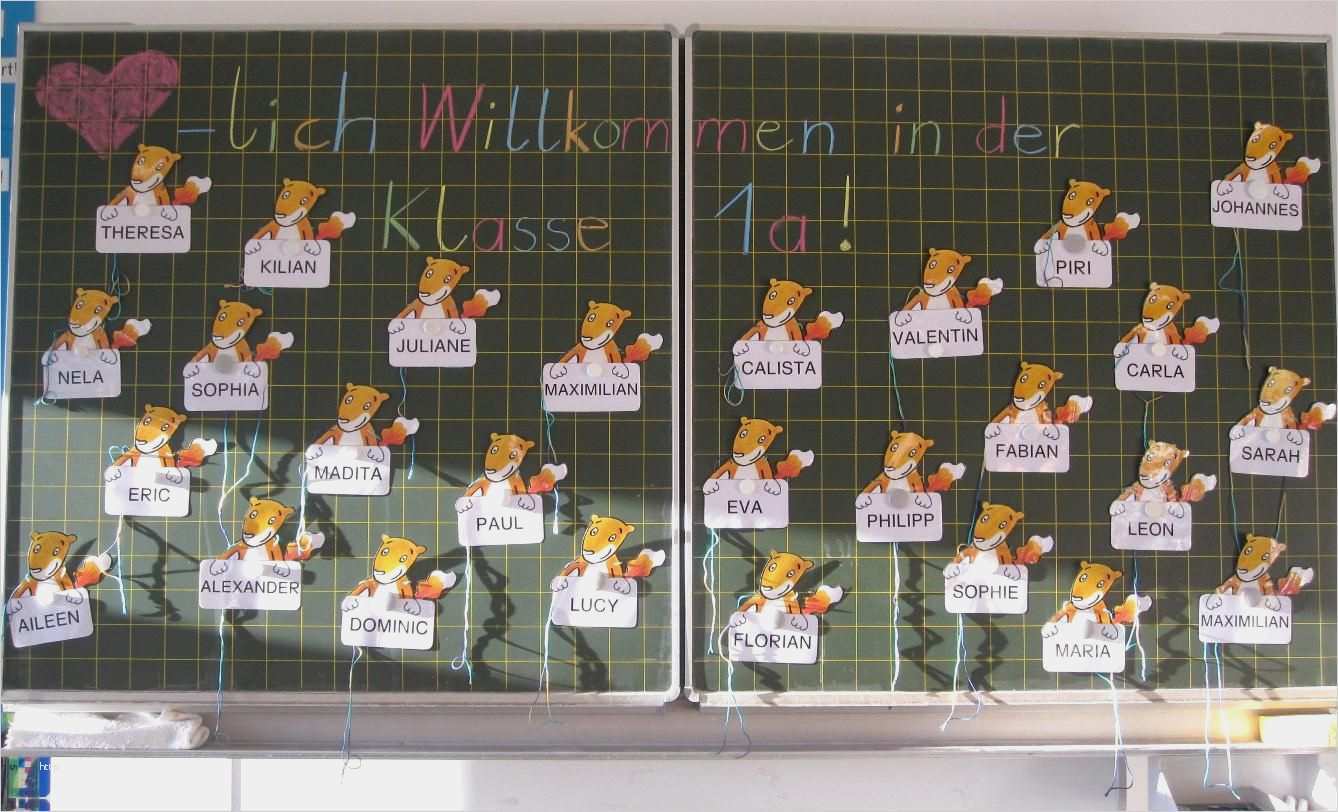 -lich Willkommen in der
Klasse 1a!
THERESA
KILIAN
JULIANE
NELA
SOPHIA
MAXIMILIAN
MADITA
ERIC
PAUL
ALEXANDER
LUCY
AILEEN
DOMINIC
JOHANNES
PIRI
VALENTIN
CALISTA
CARLA
FABIAN
SARAH
EVA
PHILIPP
LEON
SOPHIE
FLORIAN
MARIA
MAXIMILIAN